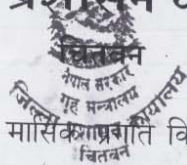 प्रशासन
चितवन
नेपाल सरकार
गृह मन्त्रालय
जिल्ला कार्यालय
मासिक प्रगति वि
चितवन